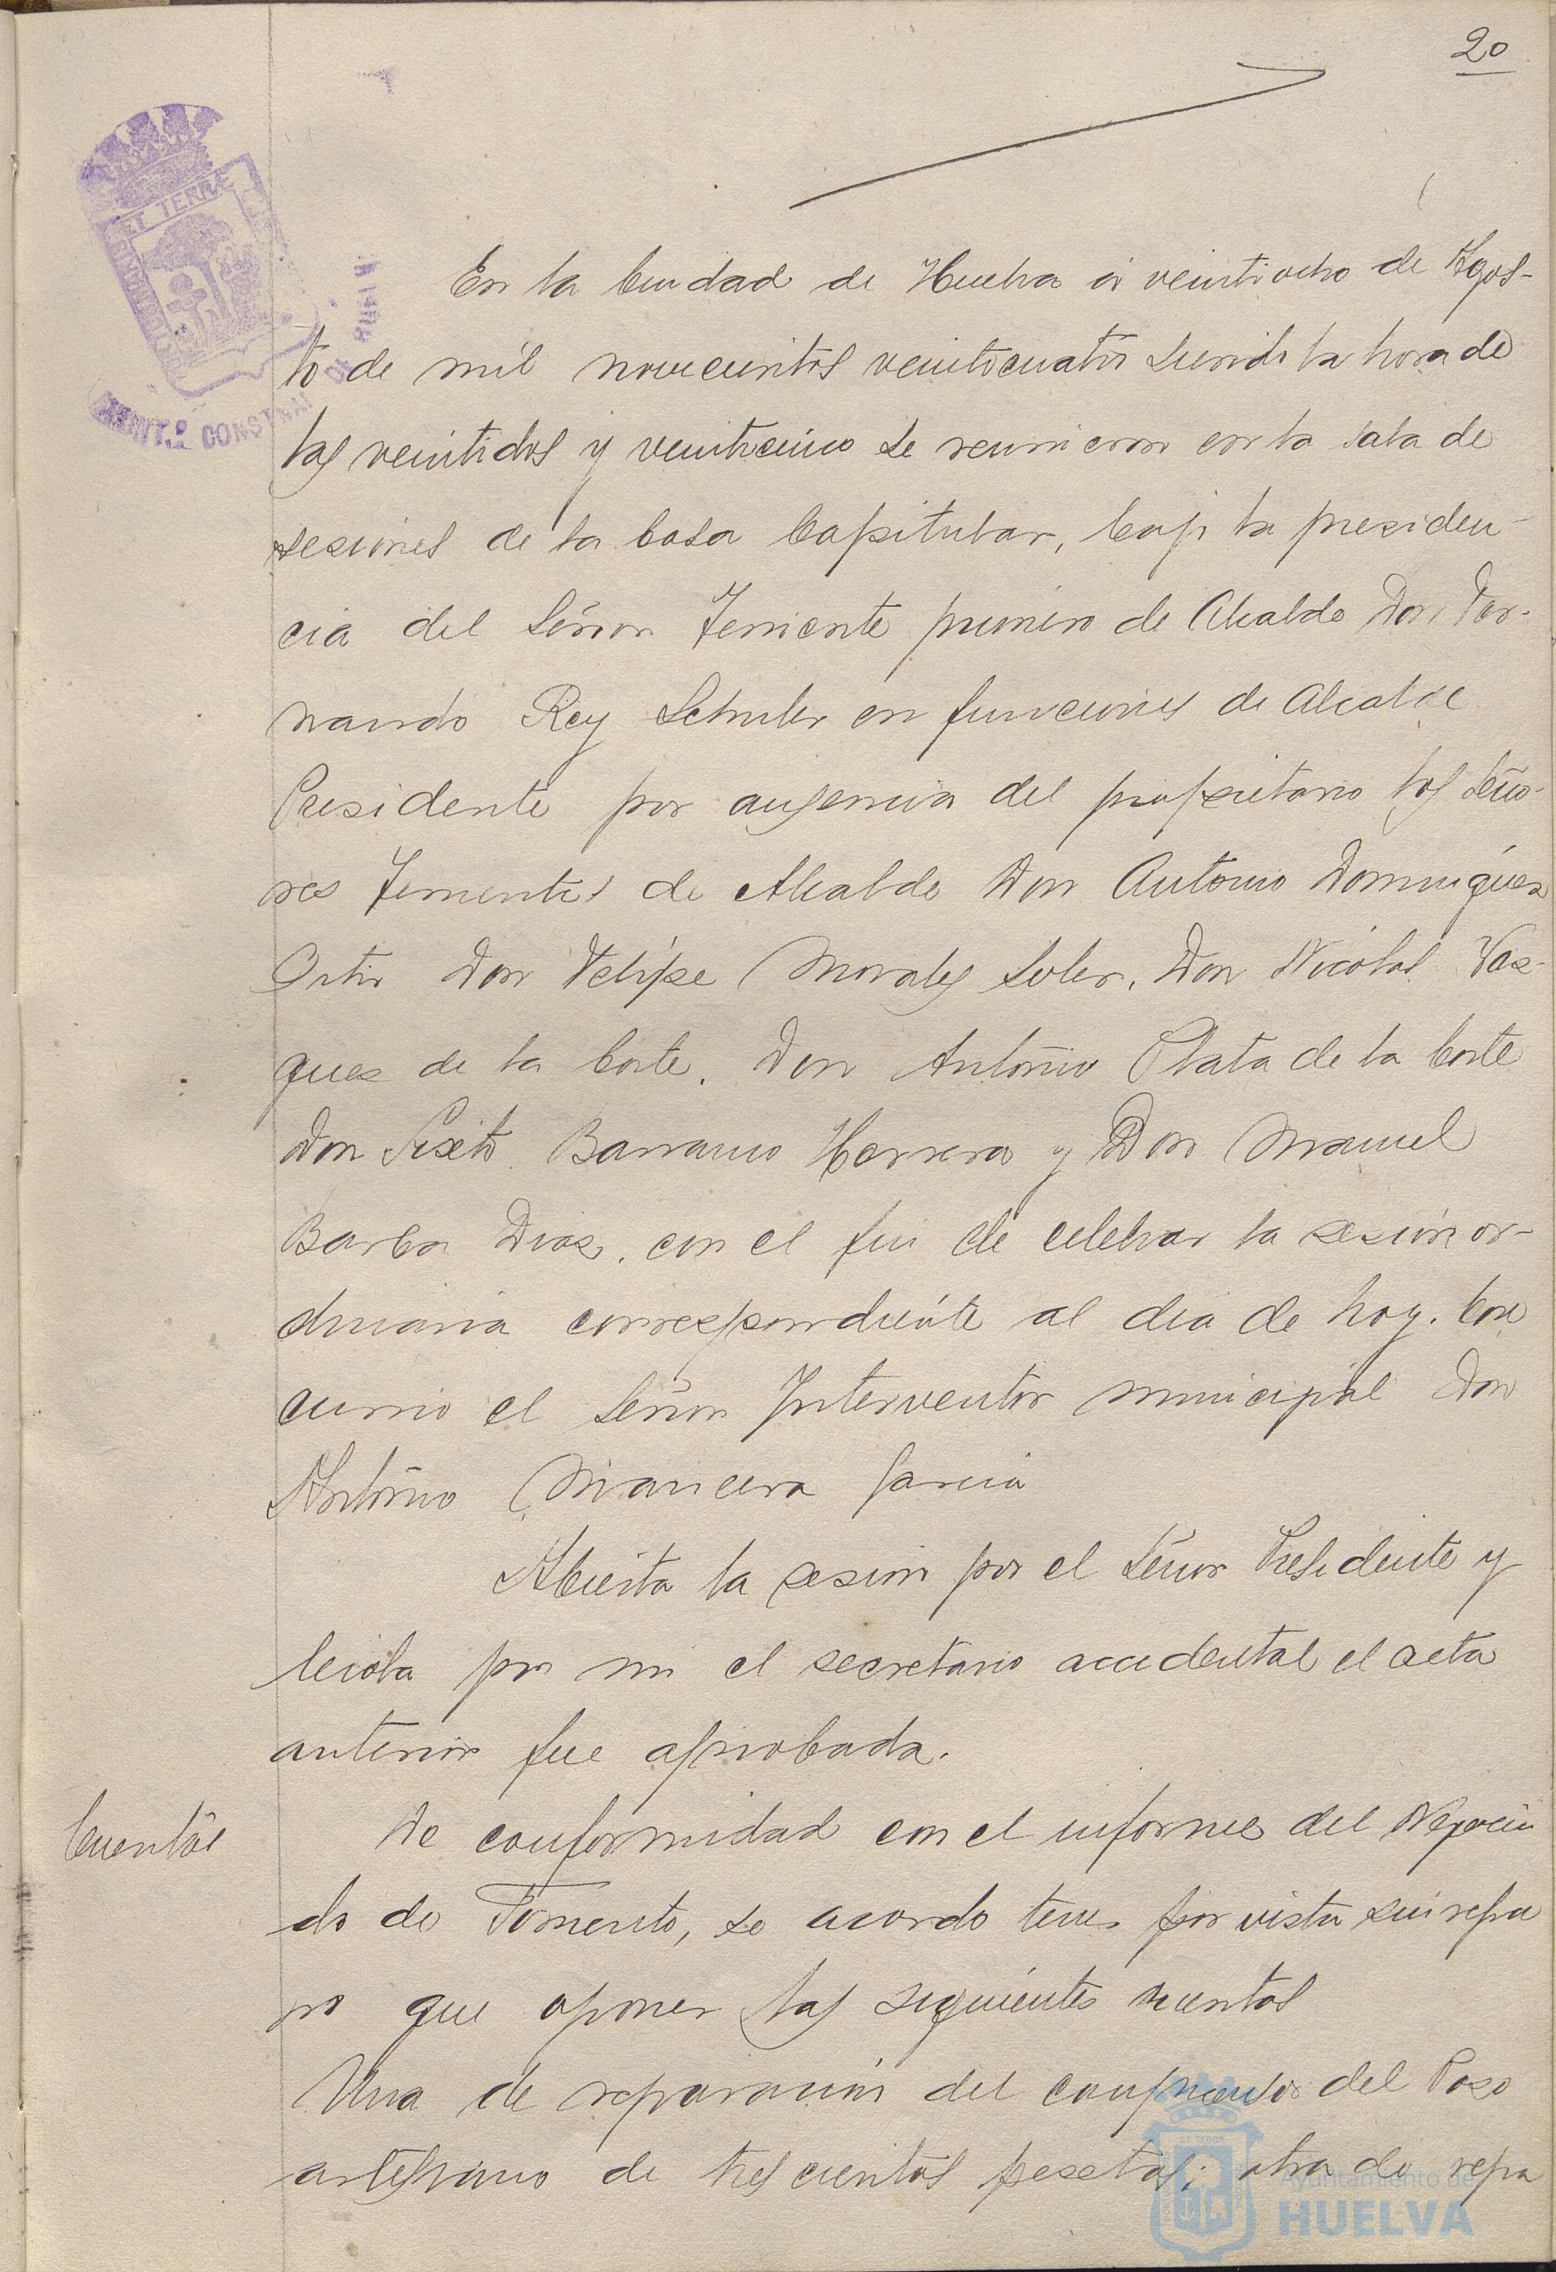 20
En la Ciudad de Huelva á veintiocho de Agos-
to de mil novecientos veinticuatro siendo la hora de
las veintidos y veinticinco se reunieron en la sala de
sesiones de la Casa Capitular, bajo la presiden-
cia del Señor Teniente primero de Alcalde Don Fer-
nando Rey Schuler en funciones de Alcalde
Presidente por ausencia del propietario los Seño-
res Tenientes de Alcalde Don Antonio Dominguez
Ortiz Don Felipe Morales Soler, Don Nicolas Vaz-
quez de la Corte, Don Antonio Plata de la Corte
Don Sixto Barranco Herrera y Don Manuel
Barba Diaz, con el fin de celebrar la sesión or-
dinaria correspondiente al dia de hoy. Con
currio el Señor Interventor municipal Don
Antonio Mancera Garcia
Abierta la sesion por el Señor Presidente y
leida por mi el secretario accidental el acta
anterior fue aprobada.
Cuentas
De conformidad con el informe del Negocia
do de Fomento, se acordo tener por vista sin repa
ro que oponer las siguientes cuentas
Una de reparacion del del Pozo
artesiano de trescientas pesetas; otra de repa
EL TERRÆ
CONSTNAL
HUELVA
Ayuntamiento de
HUELVA